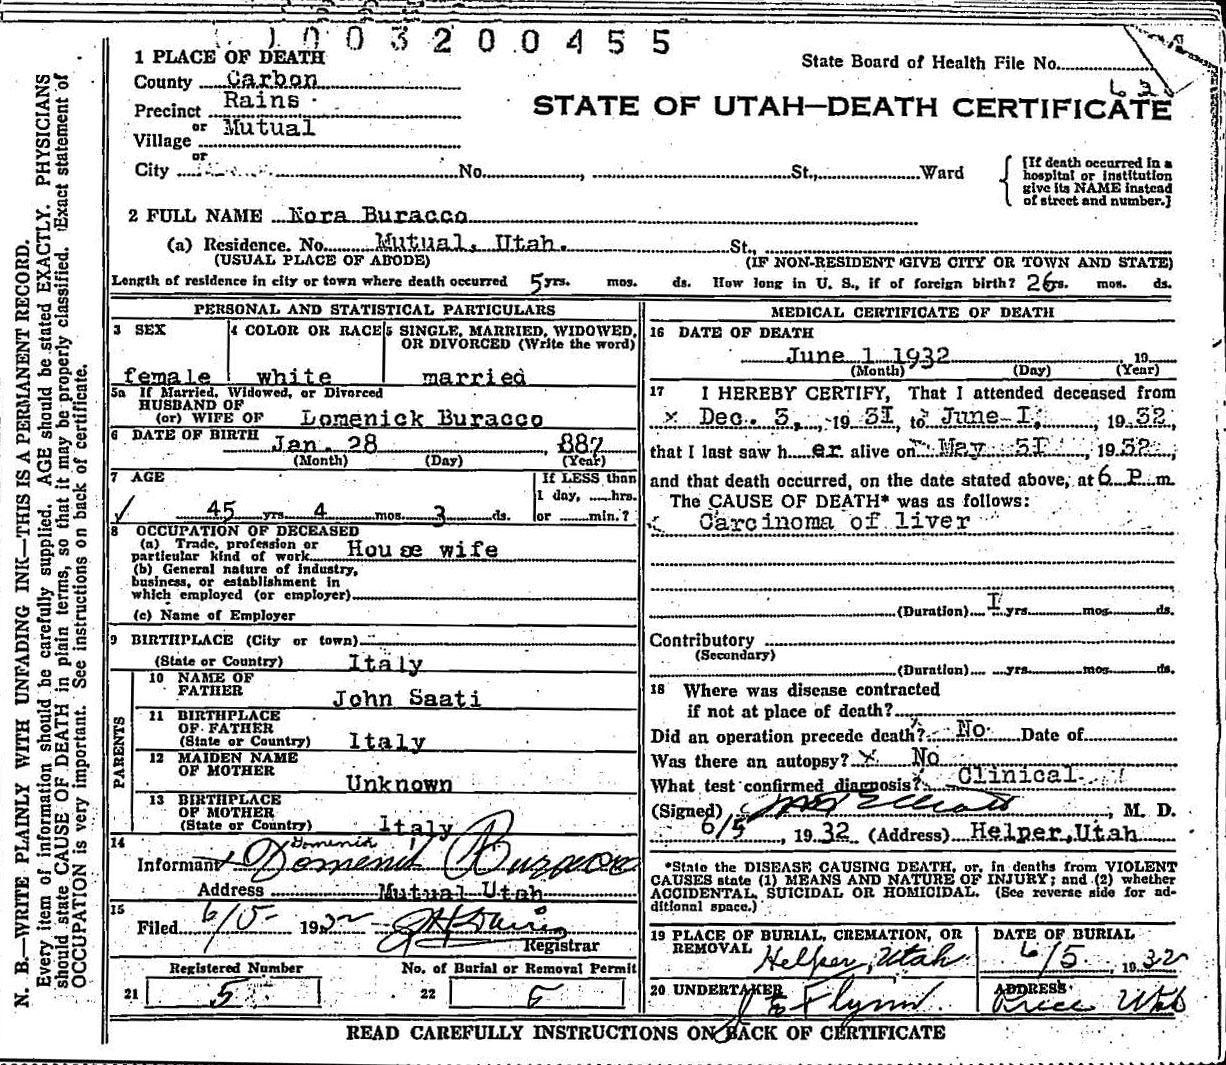 1003200455
1 PLACE OF DEATH
County Carbon
State Board of Health File No.
Precinct Rains
or
Village Mutual
or
City No. , St., Ward
STATE OF UTAH—DEATH CERTIFICATE
[If death occurred in a
hospital or institution
give its NAME instead
of street and number.]
2 FULL NAME Nora Buracco
(a) Residence. No. Mutual, Utah. St.,
(USUAL PLACE OF ABODE) (IF NON-RESIDENT GIVE CITY OR TOWN AND STATE)
Length of residence in city or town where death occurred 5 yrs. mos. ds. How long in U. S., if of foreign birth? 26 yrs. mos. ds.
PERSONAL AND STATISTICAL PARTICULARS
3 SEX
female
4 COLOR OR RACE
white
5 SINGLE, MARRIED, WIDOWED,
OR DIVORCED (Write the word)
married
5a If Married, Widowed, or Divorced
HUSBAND OF
(or) WIFE OF Lomenick Buracco
6 DATE OF BIRTH Jan. 28, 887
(Month) (Day) (Year)
7 AGE
45 yrs. 4 mos. 3 ds.
If LESS than
1 day, hrs.
or min.?
8 OCCUPATION OF DECEASED
(a) Trade, profession or
particular kind of work House wife
(b) General nature of industry,
business, or establishment in
which employed (or employer)
(c) Name of Employer
9 BIRTHPLACE (City or town)
(State or Country) Italy
PARENTS
10 NAME OF
FATHER John Saati
11 BIRTHPLACE
OF FATHER
(State or Country) Italy
12 MAIDEN NAME
OF MOTHER
Unknown
13 BIRTHPLACE
OF MOTHER
(State or Country) Italy
14
Domenik
Informant Domenik Buracco
Address Mutual Utah
15
Filed 6/5 1932 J H Davis
Registrar
Registered Number No. of Burial or Removal Permit
21 5 22 5
MEDICAL CERTIFICATE OF DEATH
16 DATE OF DEATH
June 1 1932, 19
(Month) (Day) (Year)
17 I HEREBY CERTIFY, That I attended deceased from
x Dec. 3, , 19 31, to June I, , 19 32,
that I last saw her alive on May 31, 1932,
and that death occurred, on the date stated above, at 6 P. m.
The CAUSE OF DEATH* was as follows:
Carcinoma of liver
(Duration) I yrs. mos. ds.
Contributory
(Secondary)
(Duration) yrs. mos. ds.
18 Where was disease contracted
if not at place of death?
Did an operation precede death? No Date of
Was there an autopsy? x No
What test confirmed diagnosis? Clinical
(Signed) , M. D.
6/5, 1932 (Address) Helper, Utah
*State the DISEASE CAUSING DEATH, or, in deaths from VIOLENT
CAUSES state (1) MEANS AND NATURE OF INJURY; and (2) whether
ACCIDENTAL, SUICIDAL OR HOMICIDAL. (See reverse side for ad-
ditional space.)
19 PLACE OF BURIAL, CREMATION, OR
REMOVAL Helper, Utah
DATE OF BURIAL
6/5, 1932
20 UNDERTAKER
J E Flynn
ADDRESS
Price Utah
READ CAREFULLY INSTRUCTIONS ON BACK OF CERTIFICATE
N. B.—WRITE PLAINLY WITH UNFADING INK—THIS IS A PERMANENT RECORD.
Every item of information should be carefully supplied. AGE should be stated EXACTLY. PHYSICIANS
should state CAUSE OF DEATH in plain terms, so that it may be properly classified. Exact statement of
OCCUPATION is very important. See instructions on back of certificate.